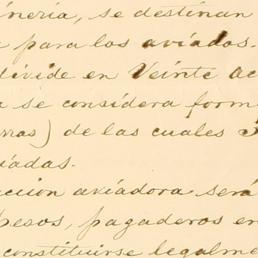 inería, se destinan
para los aviados.
divide en Veinte ac
se considera form
rras) de las cuales 3
iadas.
acción aviadora será
pesos, pagaderos en
constituirse legalme